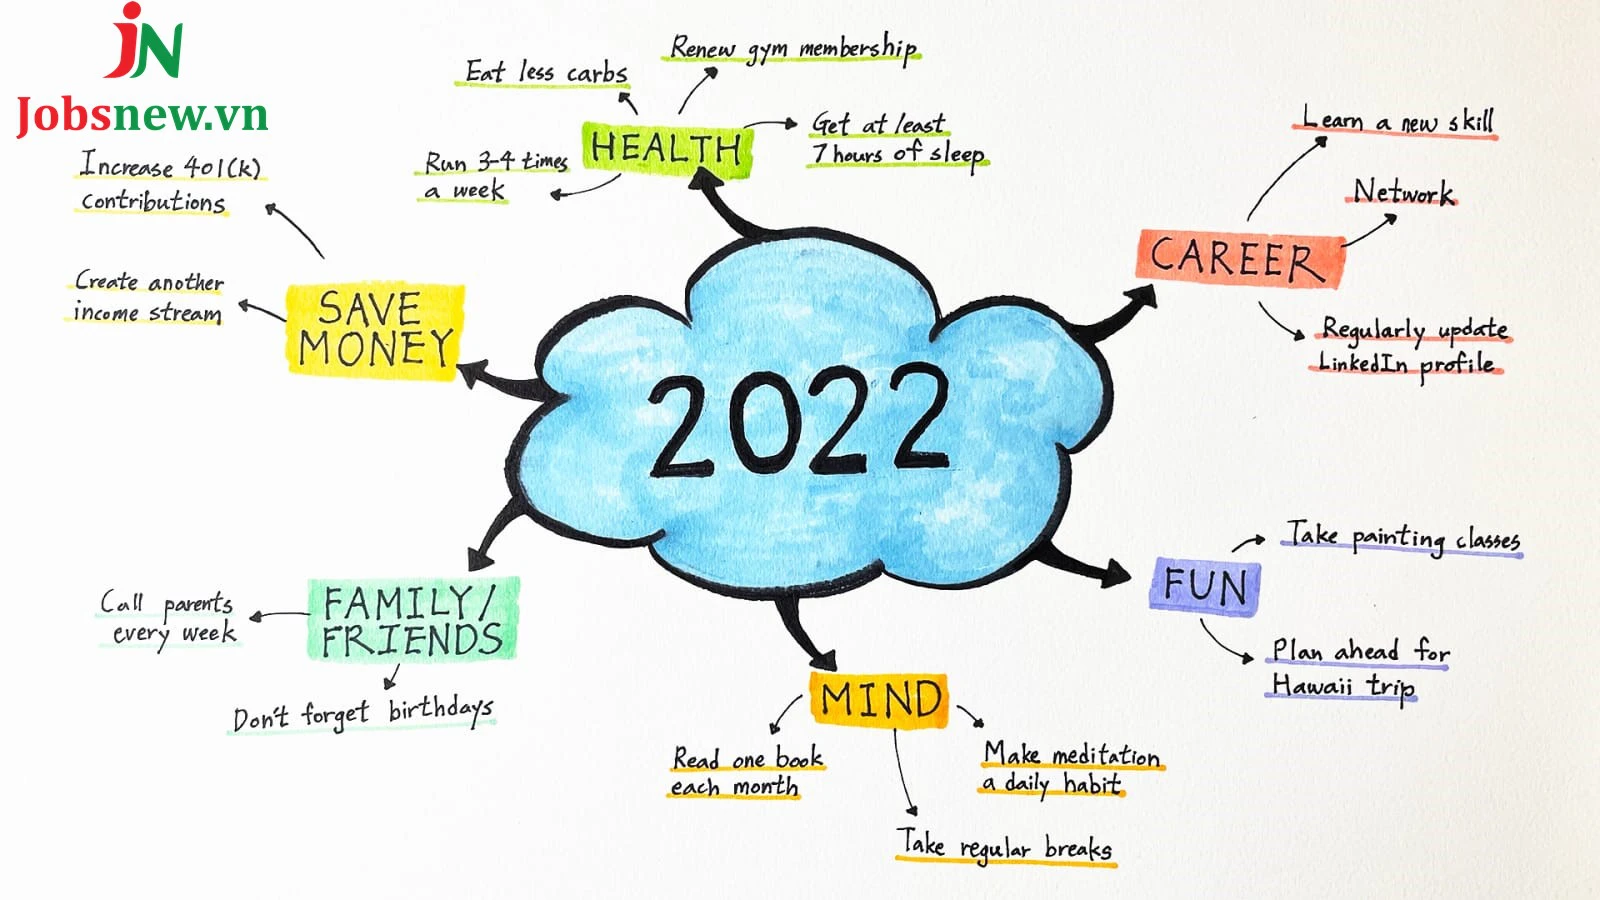 JN
Jobsnew.vn
Eat less carbs
Renew gym membership
HEALTH
Get at least
7 hours of sleep
Run 3-4 times
a week
Learn a new skill
Network
CAREER
Regularly update
LinkedIn profile
Increase 401(k)
contributions
Create another
income stream
SAVE
MONEY
2022
Take painting classes
FUN
Plan ahead for
Hawaii trip
Call parents
every week
FAMILY/
FRIENDS
Don't forget birthdays
MIND
Read one book
each month
Make meditation
a daily habit
Take regular breaks